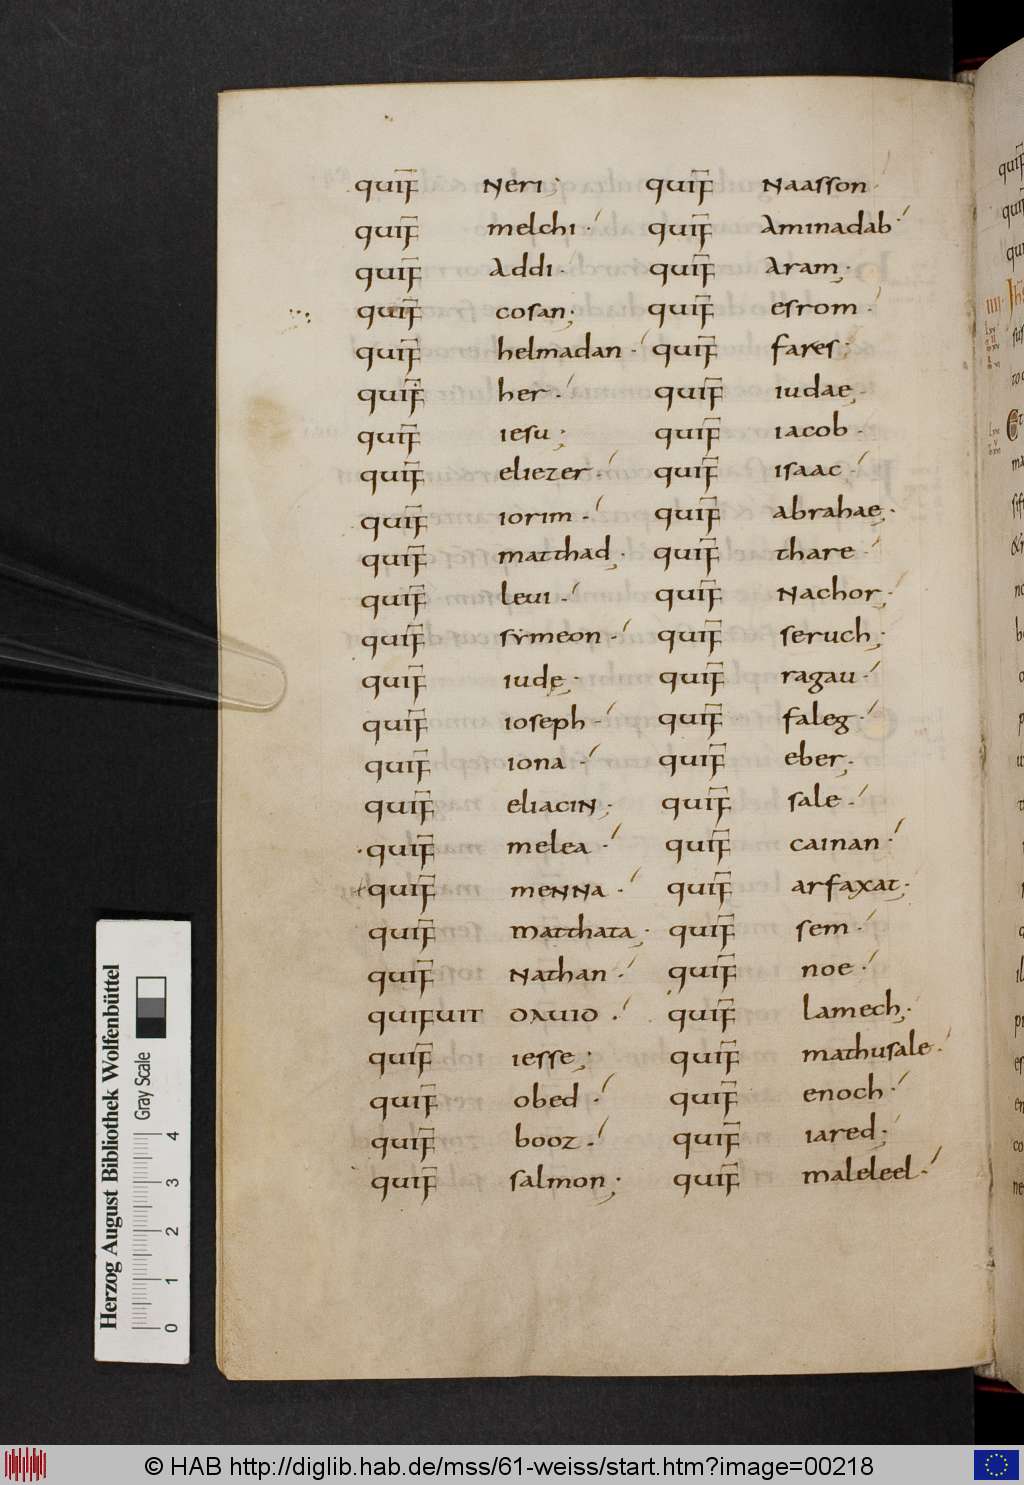 quif̄ Neri;
quif̄ melchi.
quif̄ Addi.
quif̄ cosan;
quif̄ helmadan.
quif̄ her.
quif̄ iesu;
quif̄ eliezer.
quif̄ iorim.
quif̄ matthad;
quif̄ leui.
quif̄ symeon.
quif̄ iudę.
quif̄ ioseph.
quif̄ iona.
quif̄ eliaciN;
quif̄ melea.
quif̄ meNNa.
quif̄ matthata;
quif̄ Nathan.
quifuit dAuid.
quif̄ iesse;
quif̄ obed.
quif̄ booz.
quif̄ salmon;
quif̄ Naasson.
quif̄ Aminadab.
quif̄ Aram;
quif̄ esrom.
quif̄ fares;
quif̄ iudae;
quif̄ iacob.
quif̄ isaac.
quif̄ abrahae;
quif̄ thare.
quif̄ Nachor.
quif̄ seruch;
quif̄ ragau.
quif̄ faleg.
quif̄ eber;
quif̄ sale.
quif̄ cainan.
quif̄ arfaxat;
quif̄ sem.
quif̄ noe.
quif̄ lamech;
quif̄ mathusale.
quif̄ enoch.
quif̄ iared;
quif̄ maleleel.
Herzog August Bibliothek Wolfenbüttel
Gray Scale
0 1 2 3 4
© HAB http://diglib.hab.de/mss/61-weiss/start.htm?image=00218